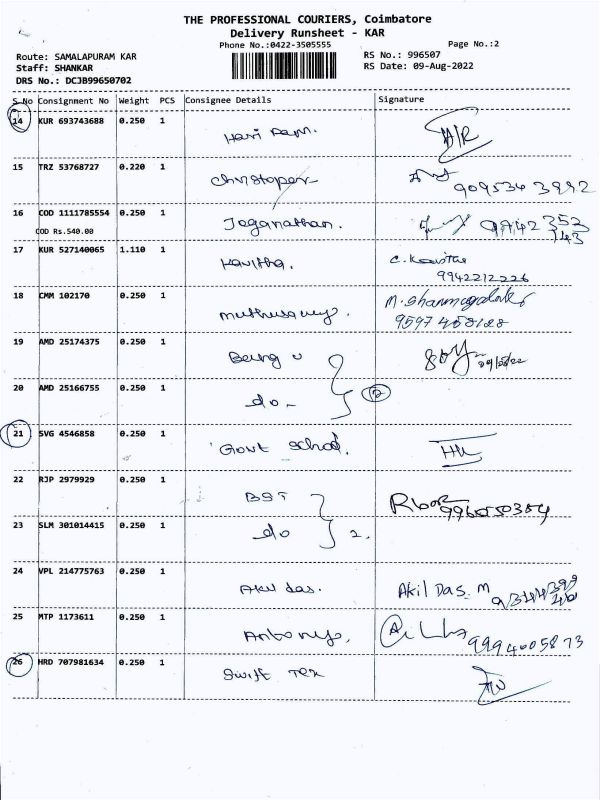 THE PROFESSIONAL COURIERS, Coimbatore
Delivery Runsheet - KAR
Phone No.:0422-3505555
Page No.:2
Route: SAMALAPURAM KAR
RS No.: 996507
Staff: SHANKAR
RS Date: 09-Aug-2022
DRS No.: DCJB99650702
S.No Consignment No Weight PCS Consignee Details Signature
14 KUR 693743688 0.250 1 Hari Ram.
15 TRZ 53768727 0.220 1 Christoper
16 COD 1111785554 0.250 1 Joganathan.
COD Rs.540.00
17 KUR 527140065 1.110 1 Kavitha. C. Kavitha
9942212226
18 CMM 102170 0.250 1 Muthusamy. M.
9597458128
19 AMD 25174375 0.250 1 Being u
20 AMD 25166755 0.250 1 do - 2
21 SVG 4546858 0.250 1 Govt School.
22 RJP 2979929 0.250 1 BST
23 SLM 301014415 0.250 1 do 2.
24 VPL 214775763 0.250 1 Akil das. Akil Das. M
25 MTP 1173611 0.250 1 Antony. 9994005873
26 HRD 707981634 0.250 1 Swift Tex